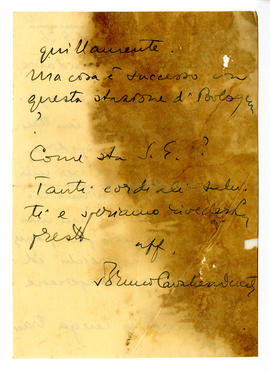 quillamente.
Ma cosa è successo con
questa stazione di Bologna
?
Come sta S. E. ?
Tanti cordiali salu-
ti e speriamo rivederla
presto
aff.
Bruno